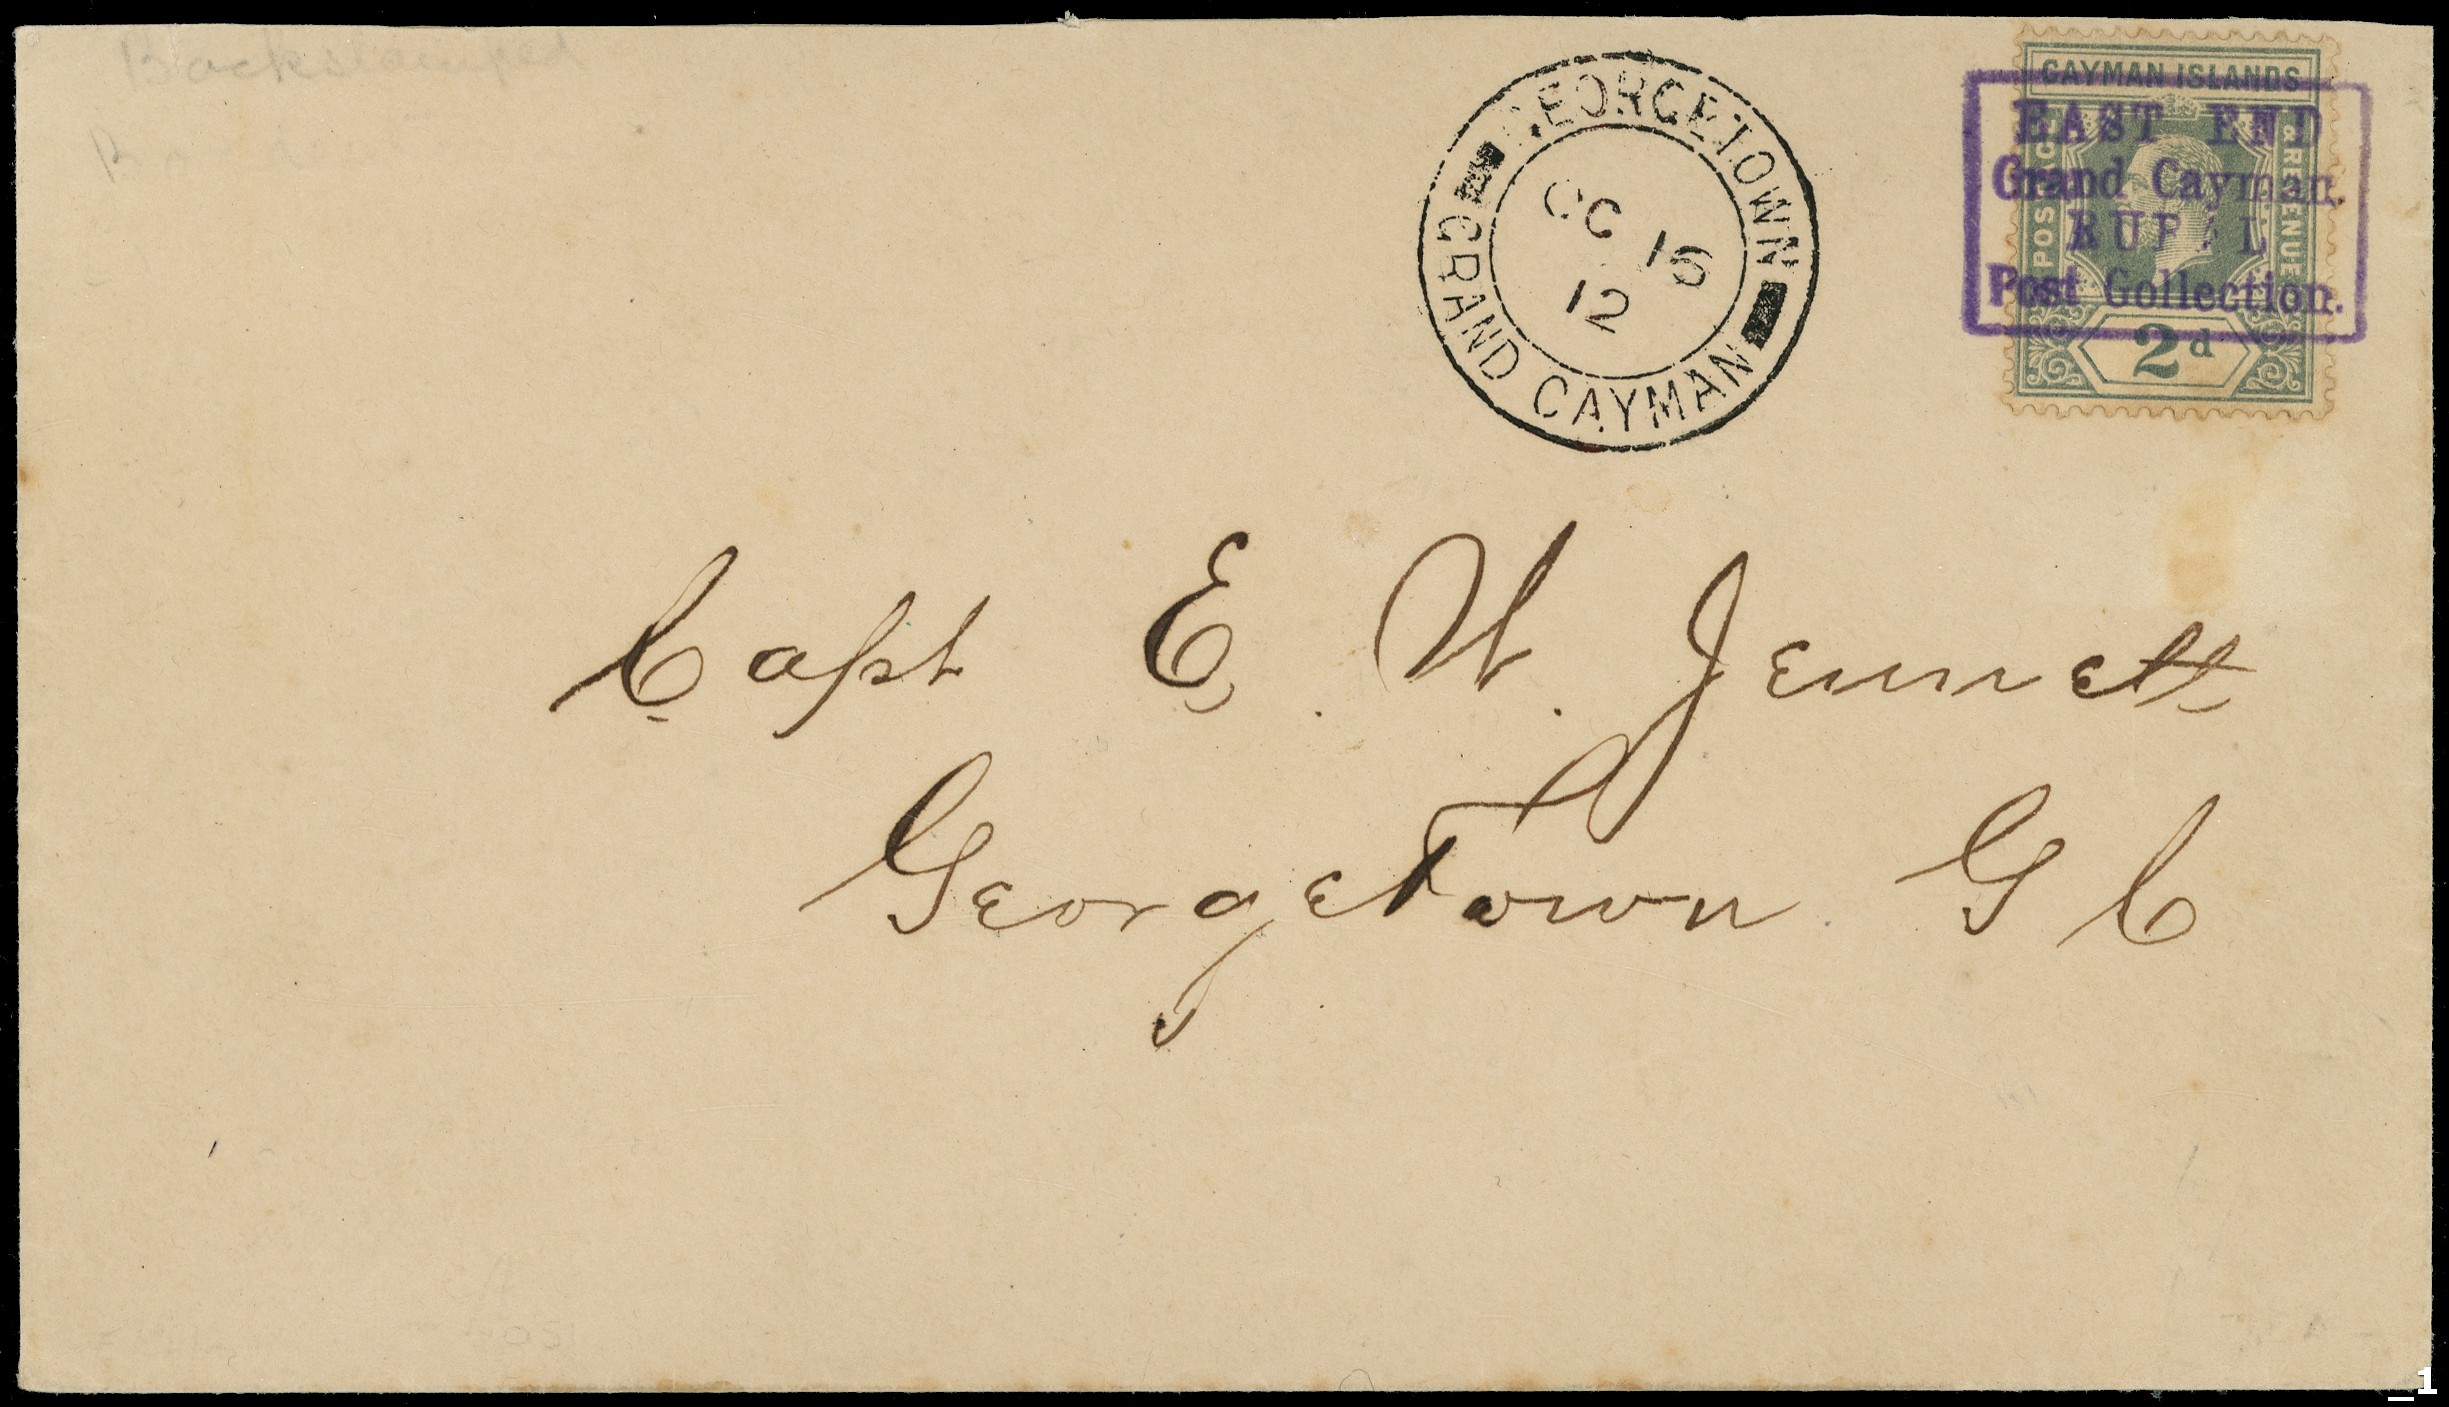 Backstamped
GEORGETOWN
OC 16
12
GRAND CAYMAN
CAYMAN ISLANDS
POSTAGE & REVENUE
2d
EAST END
Grand Cayman.
RURAL
Post Collection.
Capt E. W. Jennett
GeorgeTown G C
_1